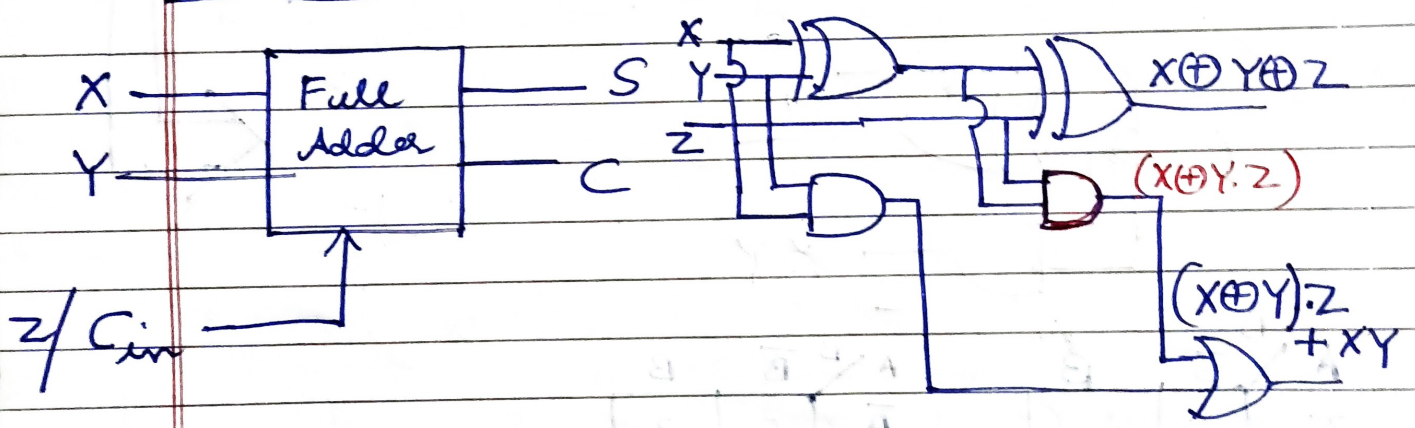 X
Full
Adder
S
Y
C
Z/ Cin
X
Y
Z
X⊕Y⊕Z
(X⊕Y.Z)
(X⊕Y).Z
+ XY